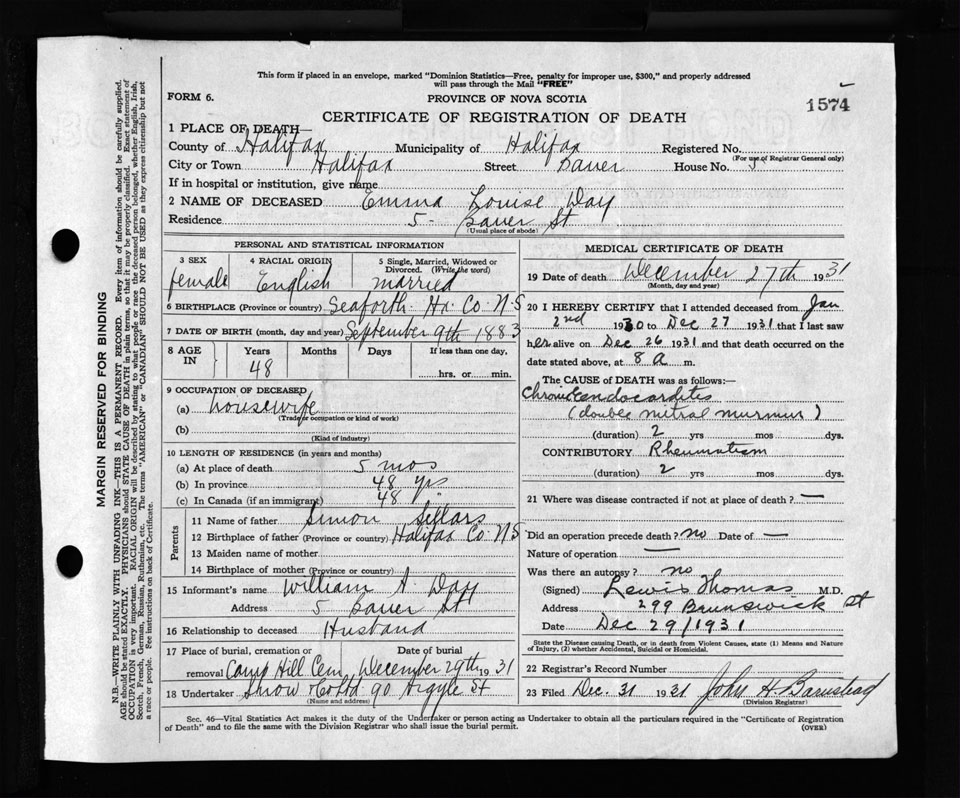 This form if placed in an envelope, marked "Dominion Statistics—Free, penalty for improper use, $300," and properly addressed
will pass through the Mail "FREE"
FORM 6.
PROVINCE OF NOVA SCOTIA
1574
CERTIFICATE OF REGISTRATION OF DEATH
1 PLACE OF DEATH—
County of Halifax Municipality of Halifax Registered No.
(For use of Registrar General only)
City or Town Halifax Street Bauer House No. 5
If in hospital or institution, give name
2 NAME OF DECEASED Emma Louise Day
Residence 5 Bauer St
(Usual place of abode)
PERSONAL AND STATISTICAL INFORMATION
3 SEX female
4 RACIAL ORIGIN English
5 Single, Married, Widowed or Divorced. (Write the word) married
6 BIRTHPLACE (Province or country) Seaforth Hx. Co. N.S
7 DATE OF BIRTH (month, day and year) September 9th 1883
8 AGE IN Years Months Days If less than one day,
48 hrs. or min.
9 OCCUPATION OF DECEASED
(a) housewife
(Trade or occupation or kind of work)
(b)
(Kind of industry)
10 LENGTH OF RESIDENCE (in years and months)
(a) At place of death 5 mos
(b) In province 48 yrs
(c) In Canada (if an immigrant) 48
Parents
11 Name of father Simon Sellars
12 Birthplace of father (Province or country) Halifax Co. N.S
13 Maiden name of mother
14 Birthplace of mother (Province or country)
15 Informant's name William A. Day
Address 5 Bauer St
16 Relationship to deceased Husband
17 Place of burial, cremation or removal Date of burial
Camp Hill Cem December 29th 1931
18 Undertaker Snow & Co Ltd 90 Argyle St
(Name and address)
MEDICAL CERTIFICATE OF DEATH
19 Date of death December 27th 1931
(Month, day and year)
20 I HEREBY CERTIFY that I attended deceased from Jan
2nd 1930 to Dec 27 1931 that I last saw
her alive on Dec 26 1931 and that death occurred on the
date stated above, at 8 a m.
The CAUSE of DEATH was as follows:—
Chronic Endocarditis
(double mitral murmur)
(duration) 2 yrs mos dys.
CONTRIBUTORY Rheumatism
(duration) 2 yrs. mos. dys.
21 Where was disease contracted if not at place of death? —
Did an operation precede death? no Date of —
Nature of operation —
Was there an autopsy? no
(Signed) Lewis Thomas M.D.
Address 299 Brunswick St
Date Dec 29/1931
State the Disease causing Death, or in death from Violent Causes, state (1) Means and Nature
of Injury, (2) whether Accidental, Suicidal or Homicidal.
22 Registrar's Record Number
23 Filed Dec. 31 1931 John H Barnstead
(Division Registrar)
Sec. 46—Vital Statistics Act makes it the duty of the Undertaker or person acting as Undertaker to obtain all the particulars required in the "Certificate of Registration
of Death" and to file the same with the Division Registrar who shall issue the burial permit.
(OVER)
MARGIN RESERVED FOR BINDING
N.B.—WRITE PLAINLY WITH UNFADING INK—THIS IS A PERMANENT RECORD. Every item of information should be carefully supplied.
AGE should be stated EXACTLY. PHYSICIANS should STATE CAUSE OF DEATH in plain terms, so that it may be properly classified. Exact statement of
OCCUPATION is very important. RACIAL ORIGIN will be described by stating to what people or race the deceased person belonged, whether English, Irish,
Scotch, French, German, Russian, Ruthenian, etc. The terms "AMERICAN" or "CANADIAN" SHOULD NOT BE USED as they express citizenship but not
a race or people. See instructions on back of Certificate.